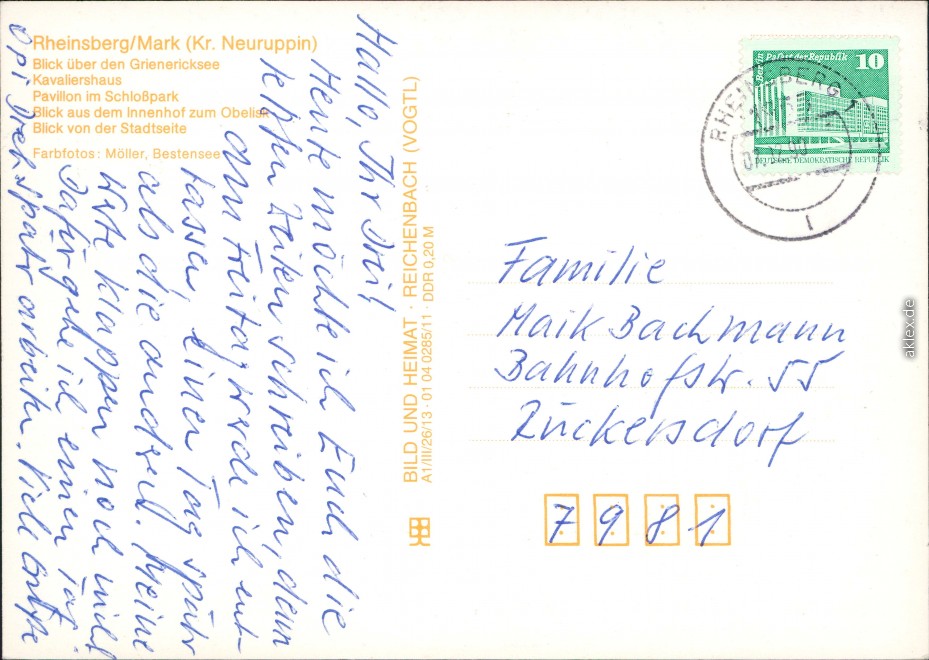 Rheinsberg/Mark (Kr. Neuruppin)
Blick über den Grienericksee
Kavaliershaus
Pavillon im Schloßpark
Blick aus dem Innenhof zum Obelisk
Blick von der Stadtseite
Farbfotos: Möller, Bestensee
Hallo, Ihr Drei!
Heute möchte ich Euch die
letzten Zeilen schreiben, denn
am Freitag werde ich ent-
lassen, einen Tag später
als die anderen. Meine
Werte klappen noch nicht
Dafür gehe ich einen Tag
später arbeiten. Viele Grüße
Opi
BILD UND HEIMAT · REICHENBACH (VOGTL)
A1/III/26/13 · 01 04 0285/11 · DDR 0,20 M
Berlin Palast der Republik 10
DEUTSCHE DEMOKRATISCHE REPUBLIK
RHEINSBERG 1
90
Familie
Maik Bachmann
Bahnhofstr. 55
Rückersdorf
7981
aklex.de